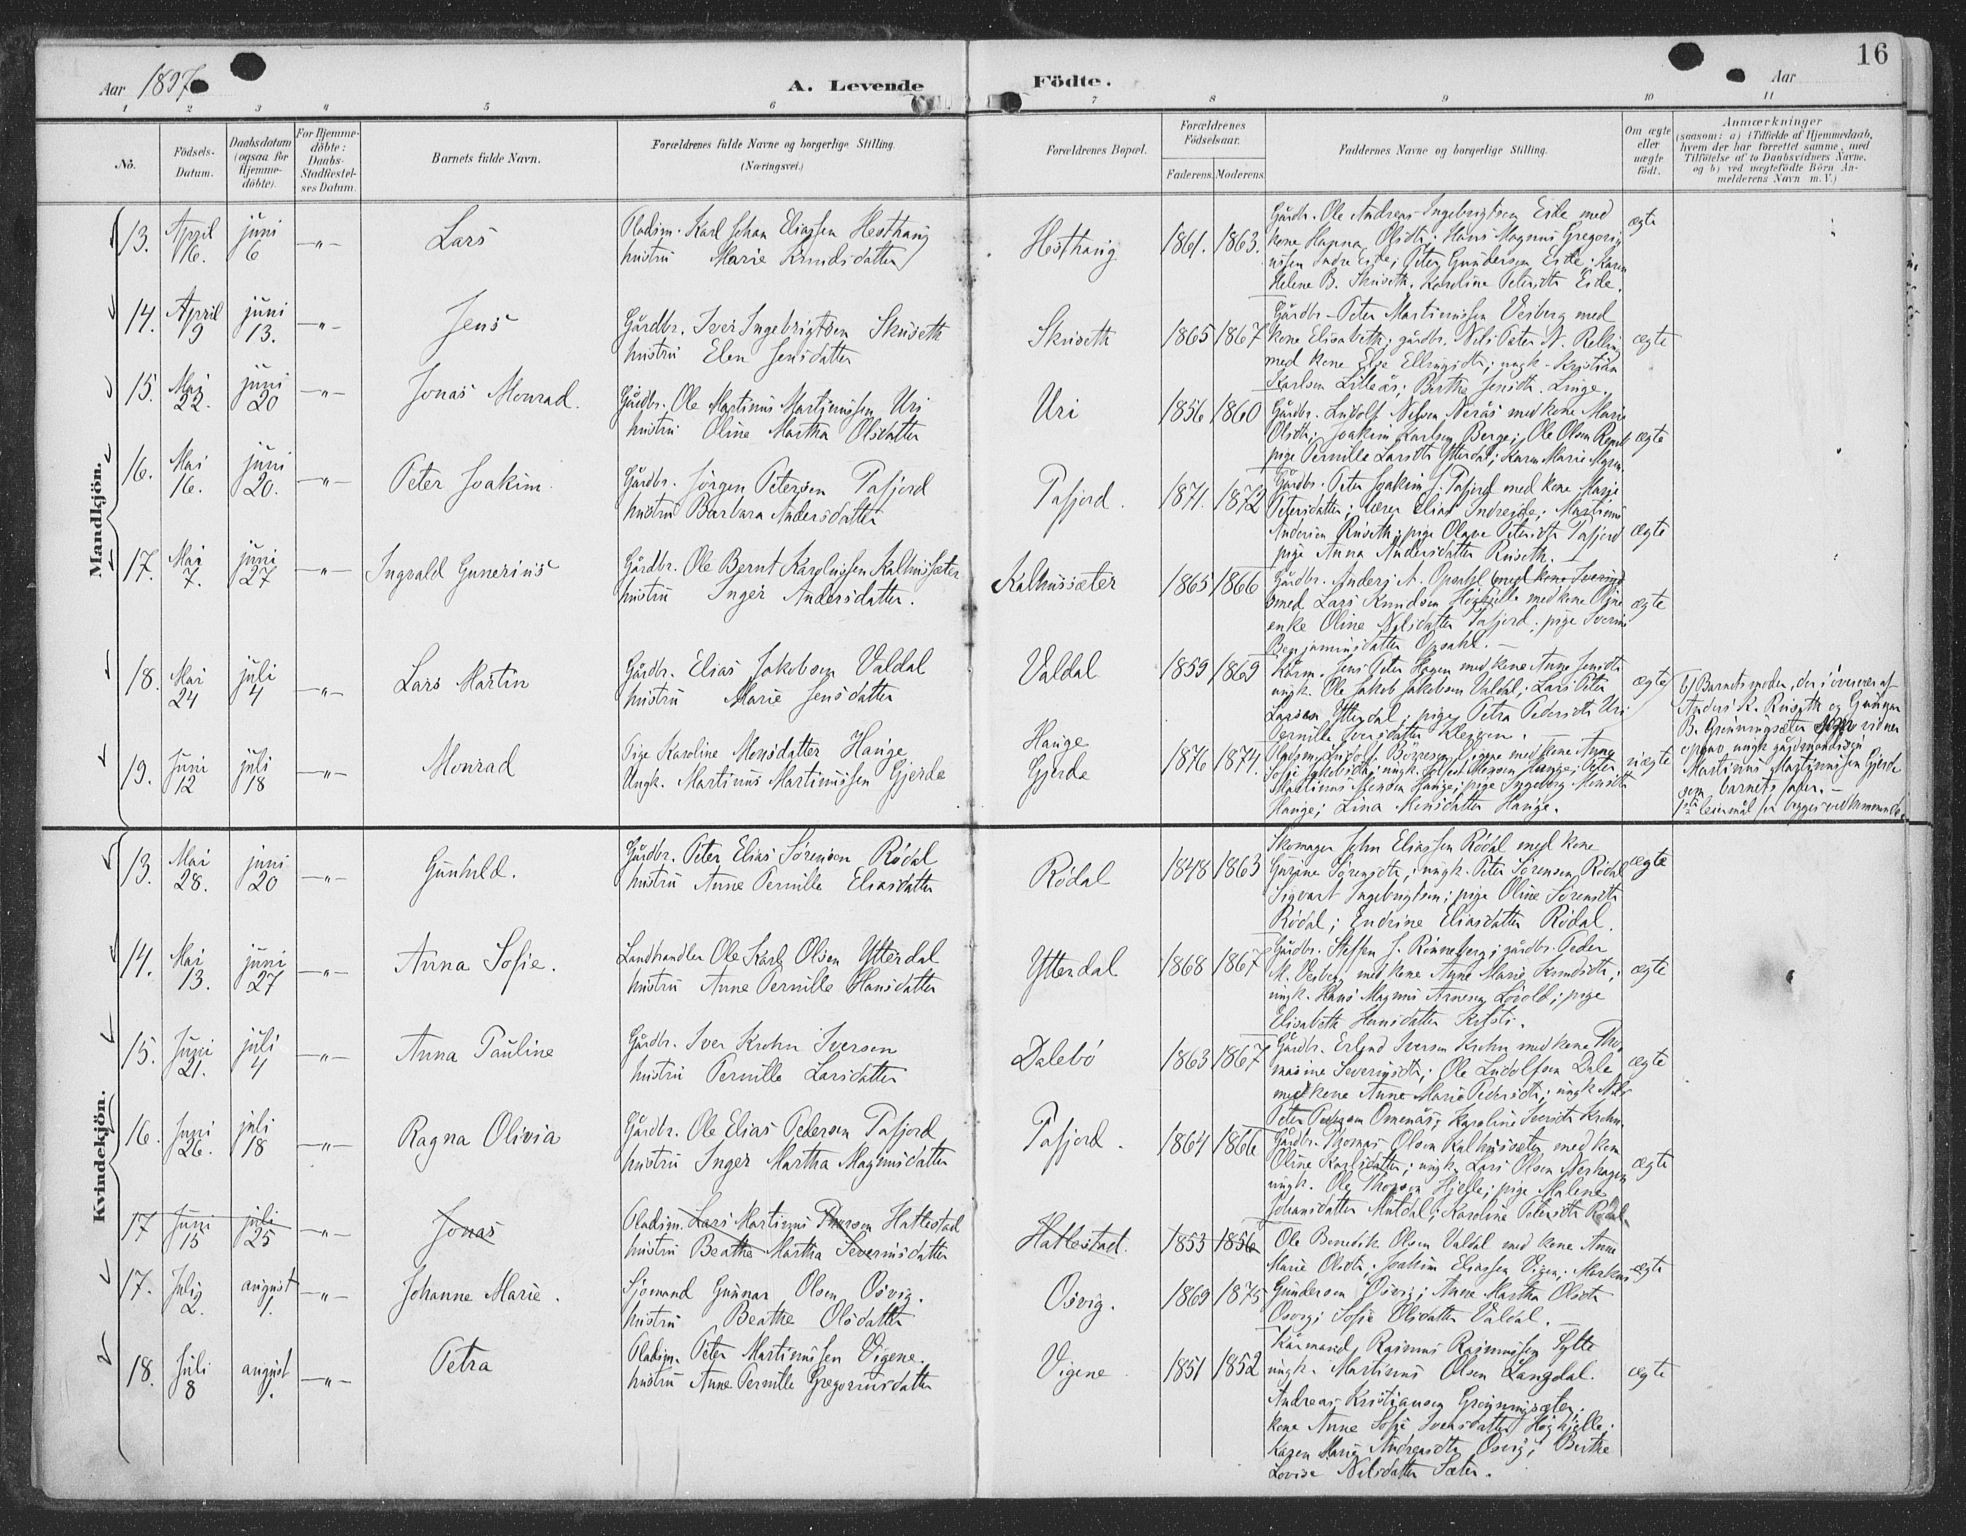 16
Aar 1897
A. Levende Födte.
Aar
1 2 3 4 5 6 7 8 9 10 11
No.
Födsels-Datum.
Daabsdatum (ogsaa for Hjemme-döbte).
For Hjemme-döbte: Daabs-Stadfæstel-ses Datum.
Barnets fulde Navn.
Forældrenes fulde Navne og borgerlige Stilling. (Næringsvei.)
Forældrenes Bopæl.
Forældrenes Födselsaar.
Faderens. Moderens.
Faddernes Navne og borgerlige Stilling.
Om ægte eller uægte födt.
Anmærkninger
(saasom: a) i Tilfælde af Hjemmedaab, hvem der har forrettet samme, med Tilföielse af to Daabsvidners Navne, og b) ved uægtefödte Börn Anmelderens Navn m. V.)
Mandkjön.
13. April 16. juni 6 —"— Lars
Pladsm. Karl Johan Eliassen Hesthaug
hustru Marie Knudsdatter
Hesthaug 1861. 1863.
Gårdbr. Ole Andreas Ingebrigtsen Eide med
kone Hanna Olsdtr; Hans Magnus Gregorius-
Peter Gundersen Eide; Karen
Helene B. Skuseth. Karoline Petersdtr Eide.
ægte
14. April 9 juni 13. —"— Jens
Gårdbr. Iver Ingebrigtsen Skuseth
hustru Elen Jensdatter
Skuseth 1865 1867
Gårdbr. Peter Martinussen Veiberg med
kone Elisabeth; gårdbr. Nils Peter N. Relling
med kone Else Ellingsdtr; ungk. Kristian
Karlsen Lilleås; Birthe Jensdtr. Linge.
ægte
15. Mai 22. juni 20 —"— Jonas Monrad.
Gårdbr. Ole Martinus Martinussen Uri
hustru Oline Martha Olsdatter
Uri 1856 1860
Gårdbr. Ludolf Nilsen Nerås med kone Marie
Olsdtr; Joakim Karlsen Berge; Ole Olsen
pige Pernille Larsdtr Ytterdal; Karen Marie
ægte
16. Mai 16. juni 20. —"— Peter Joakim.
Gårdbr. Jörgen Petersen Tafjord
hustru Barbara Andersdatter
Tafjord. 1871. 1872
Gårdbr. Peter Joakim J. Tafjord med kone Marie
Petersdatter; lærer Elias Indreeide; Martinus
Andersen Ruseth; pige Olave Petersdtr Tafjord
pige Anna Andersdatter Ruseth.
ægte
17. Mai 7. juni 27 —"— Ingvald Gunerius
Gårdbr. Ole Bernt Karolussen Kalhussæter
hustru Inger Andersdatter.
Kalhussæter 1865 1866
Gårdbr. Anders A. Opsahl med kone
smed Lars Knudsen Höghjelle med kone Oline
enke Oline Nilsdatter Tafjord; pige Severine
Benjaminsdatter Opsahl. —
ægte
18. Mai 24 juli 4 —"— Lars Martin
Gårdbr. Elias Jakobsen Valdal
hustru Marie Jensdatter
Valdal 1859 1869
Kårm. Jens Peter Hagen med kone Anne Jensdtr
ungk. Ole Jakob Jakobsen Valdal; Lars Peter
Larsen Ytterdal; pige Petra Pedersdtr Uri
Pernille Iversdatter Kleppen.
ægte
19. Juni 12 juli 18 —"— Monrad
Pige Karoline Monsdatter Hauge
Ungk. Martinus Martinussen Gjerde
Hauge
Gjerde 1876 1874.
Pladsm. Ludolf Börresen Vigene med kone Anne
Sofie Jakobsdtr; ungk. Monsen Hauge; Peter
Martinus Monsen Hauge; pige Ingeborg Monsdtr
Hauge; Lina Monsdatter Hauge.
uægte
b) Barnets moder, der i overvær af
Anders K. Ruseth og Gunnar
B. Grönningsæter som vidner
opgav ungk. gårdmandssön
Martinus Martinussen Gjerde
som barnets fader. —
1ste leiermål for begges vedkommende.
Kvindekjön.
13. Mai 28. juni 20 —"— Gunhild.
Gårdbr. Peter Elias Sörensen Rödal
hustru Anne Pernille Eliasdatter
Rödal 1848 1863
Skomager John Eliassen Rödal med kone
Gurine Sörensdtr; ungk. Peter Sörensen Rödal
Sigvart Ingebrigtsen; pige Oline Sörensdtr
Rödal; Endrine Eliasdatter Rödal.
ægte
14. Mai 13. juni 27 —"— Anna Sofie.
Landhandler Ole Karl Olsen Ytterdal
hustru Anne Pernille Hansdatter
Ytterdal 1868 1867
Gårdbr. Steffen J. Rönneberg; gårdbr. Peder
M. Veiberg med kone Anne Marie Knudsdtr;
ungk. Hans Magnus Arnesen Lövold; pige
Elisabeth Hansdatter
ægte
15. Juni 21. juli 4 —"— Anna Pauline
Gårdbr. Iver Krohn Iversen
hustru Pernille Larsdatter
Dalebö 1863 1867
Gårdbr. Erland Iversen Krohn med kone Tho-
masine Severinsdtr; Ole Ludolfsen Dale
med kone Anne Marie Pedersdtr; ungk Nils
Peter Pedersen Omenås; Karoline Iversdtr Krohn.
ægte
16. Juni 26. juli 18 —"— Ragna Olivia
Gårdbr. Ole Elias Pedersen Tafjord
hustru Inger Martha Magnusdatter
Tafjord. 1864 1866
Gårdbr. Thomas Olsen Kalhussæter med kone
Oline Karlsdatter; ungk. Lars Olsen Nerhagen
ungk. Ole Thorsen Hjelle; pige Malene
Johansdatter Muldal; Karoline Petersdtr Rödal.
ægte
17 Juni 15 juli 25 —"— Jonas
Pladsm. Lars Martinus Thorsen Hattestad
hustru Beathe Martha Severinsdatter
Hattestad. 1853 1856
17. Juli 2. august 1. —"— Johanne Marie.
Sjömand Gunnar Olsen Osvig.
hustru Beathe Olsdatter
Osvig. 1869 1875
Ole Benedik Olsen Valdal med kone Anne
Marie Olsdtr. Joakim Eliassen Vigen; Markus
Gundersen Osvig; Anne Martha Olsdtr
Osvig; Sofie Olsdatter Valdal. —
ægte
18. Juli 8 august 1. —"— Petra
Pladsm. Peter Martinussen Vigene.
hustru Anne Pernille Gregoriusdatter
Vigene 1851 1852
Kårmand Rasmus Rasmussen Sylte
ungk. Martinus Olsen Langdal.
Andreas Kristiansen Grönningsæter;
kone Anne Sofie Iversdatter Höghjelle;
Karen Marie Andreasdtr Osvig; Birthe
Lovise Nilsdatter Sæter.
ægte